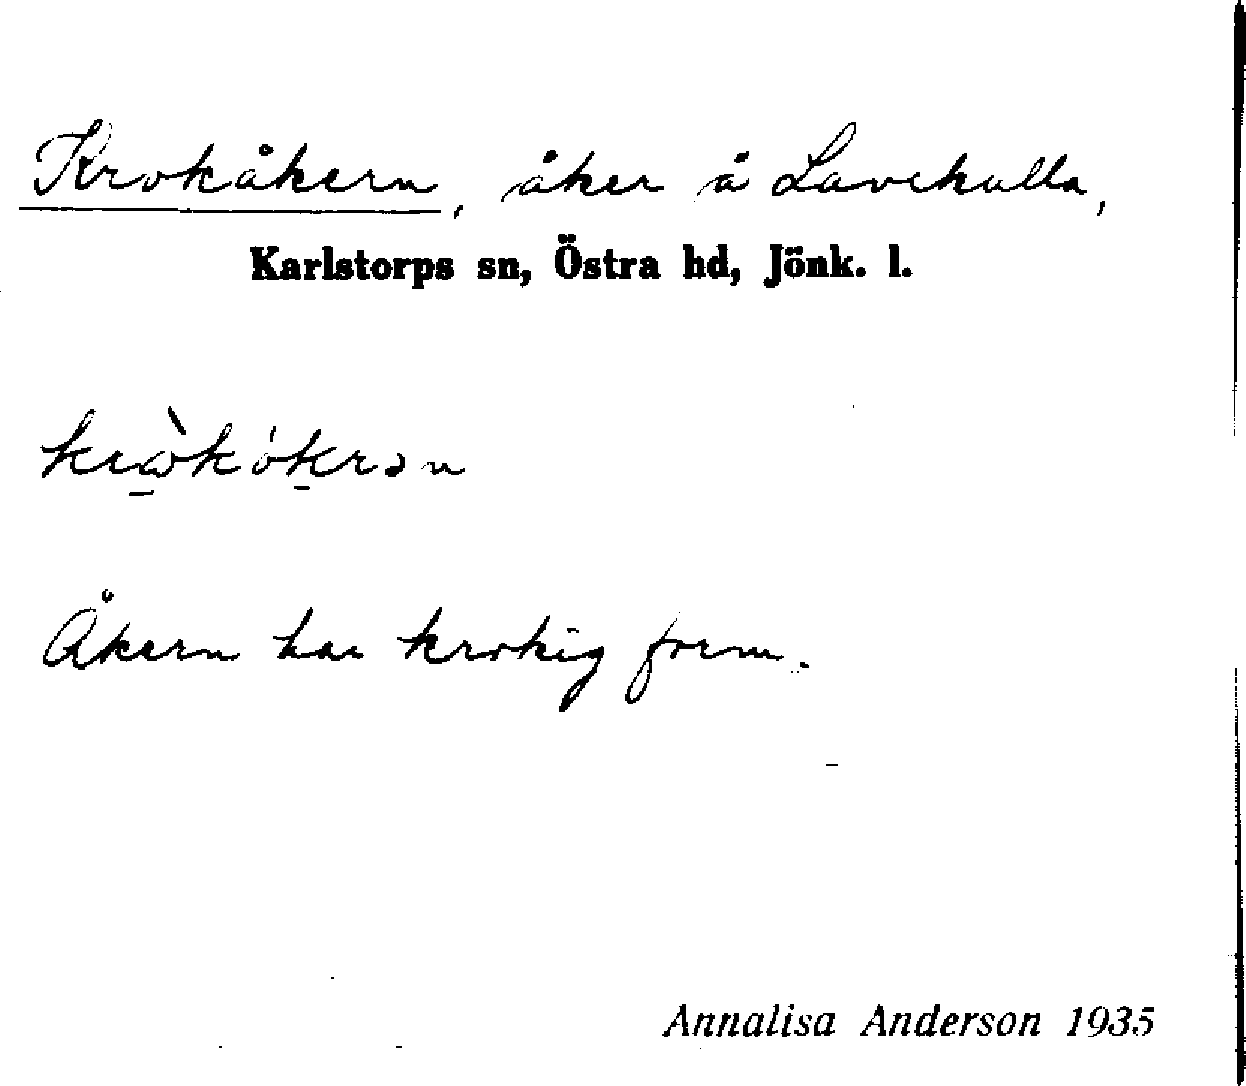 Krokåkern, åker å Lavekulla,
Karlstorps sn, Östra hd, Jönk. l.
krωkókrən
Åkern har krokig form.
Annalisa Anderson 1935